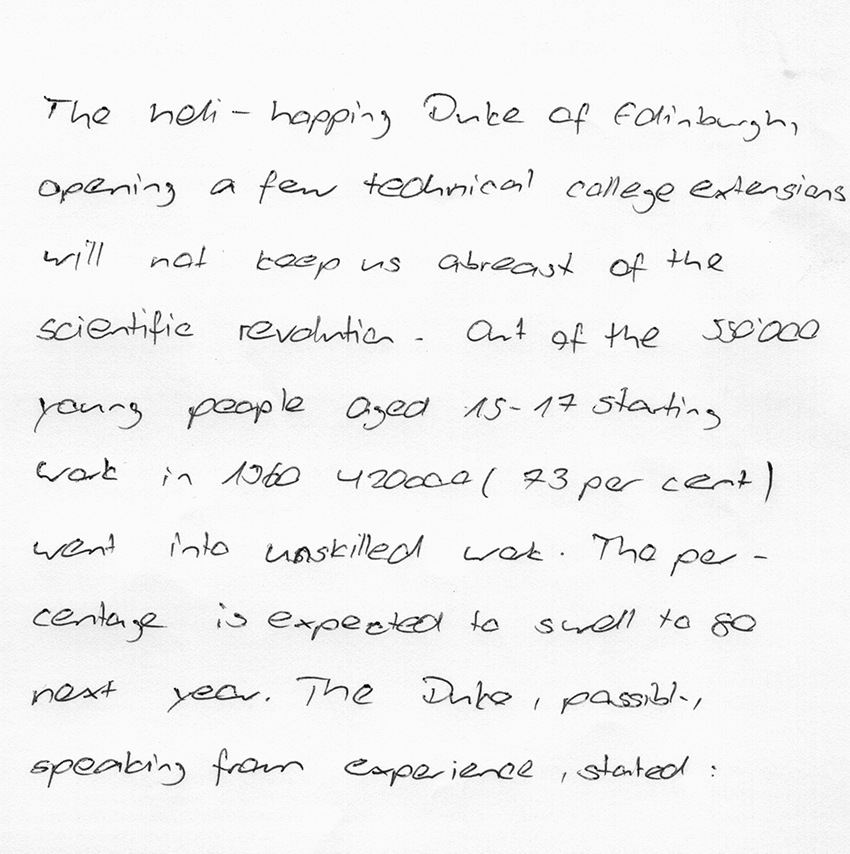 The heli-hopping Duke of Edinburgh,
opening a few technical college extensions
will not keep us abreast of the
scientific revolution. Out of the 550'000
young people aged 15-17 starting
work in 1960 420000 ( 73 per cent )
went into unskilled work. The per-
centage is expected to swell to 80
next year. The Duke, possibly,
speaking from experience, stated: